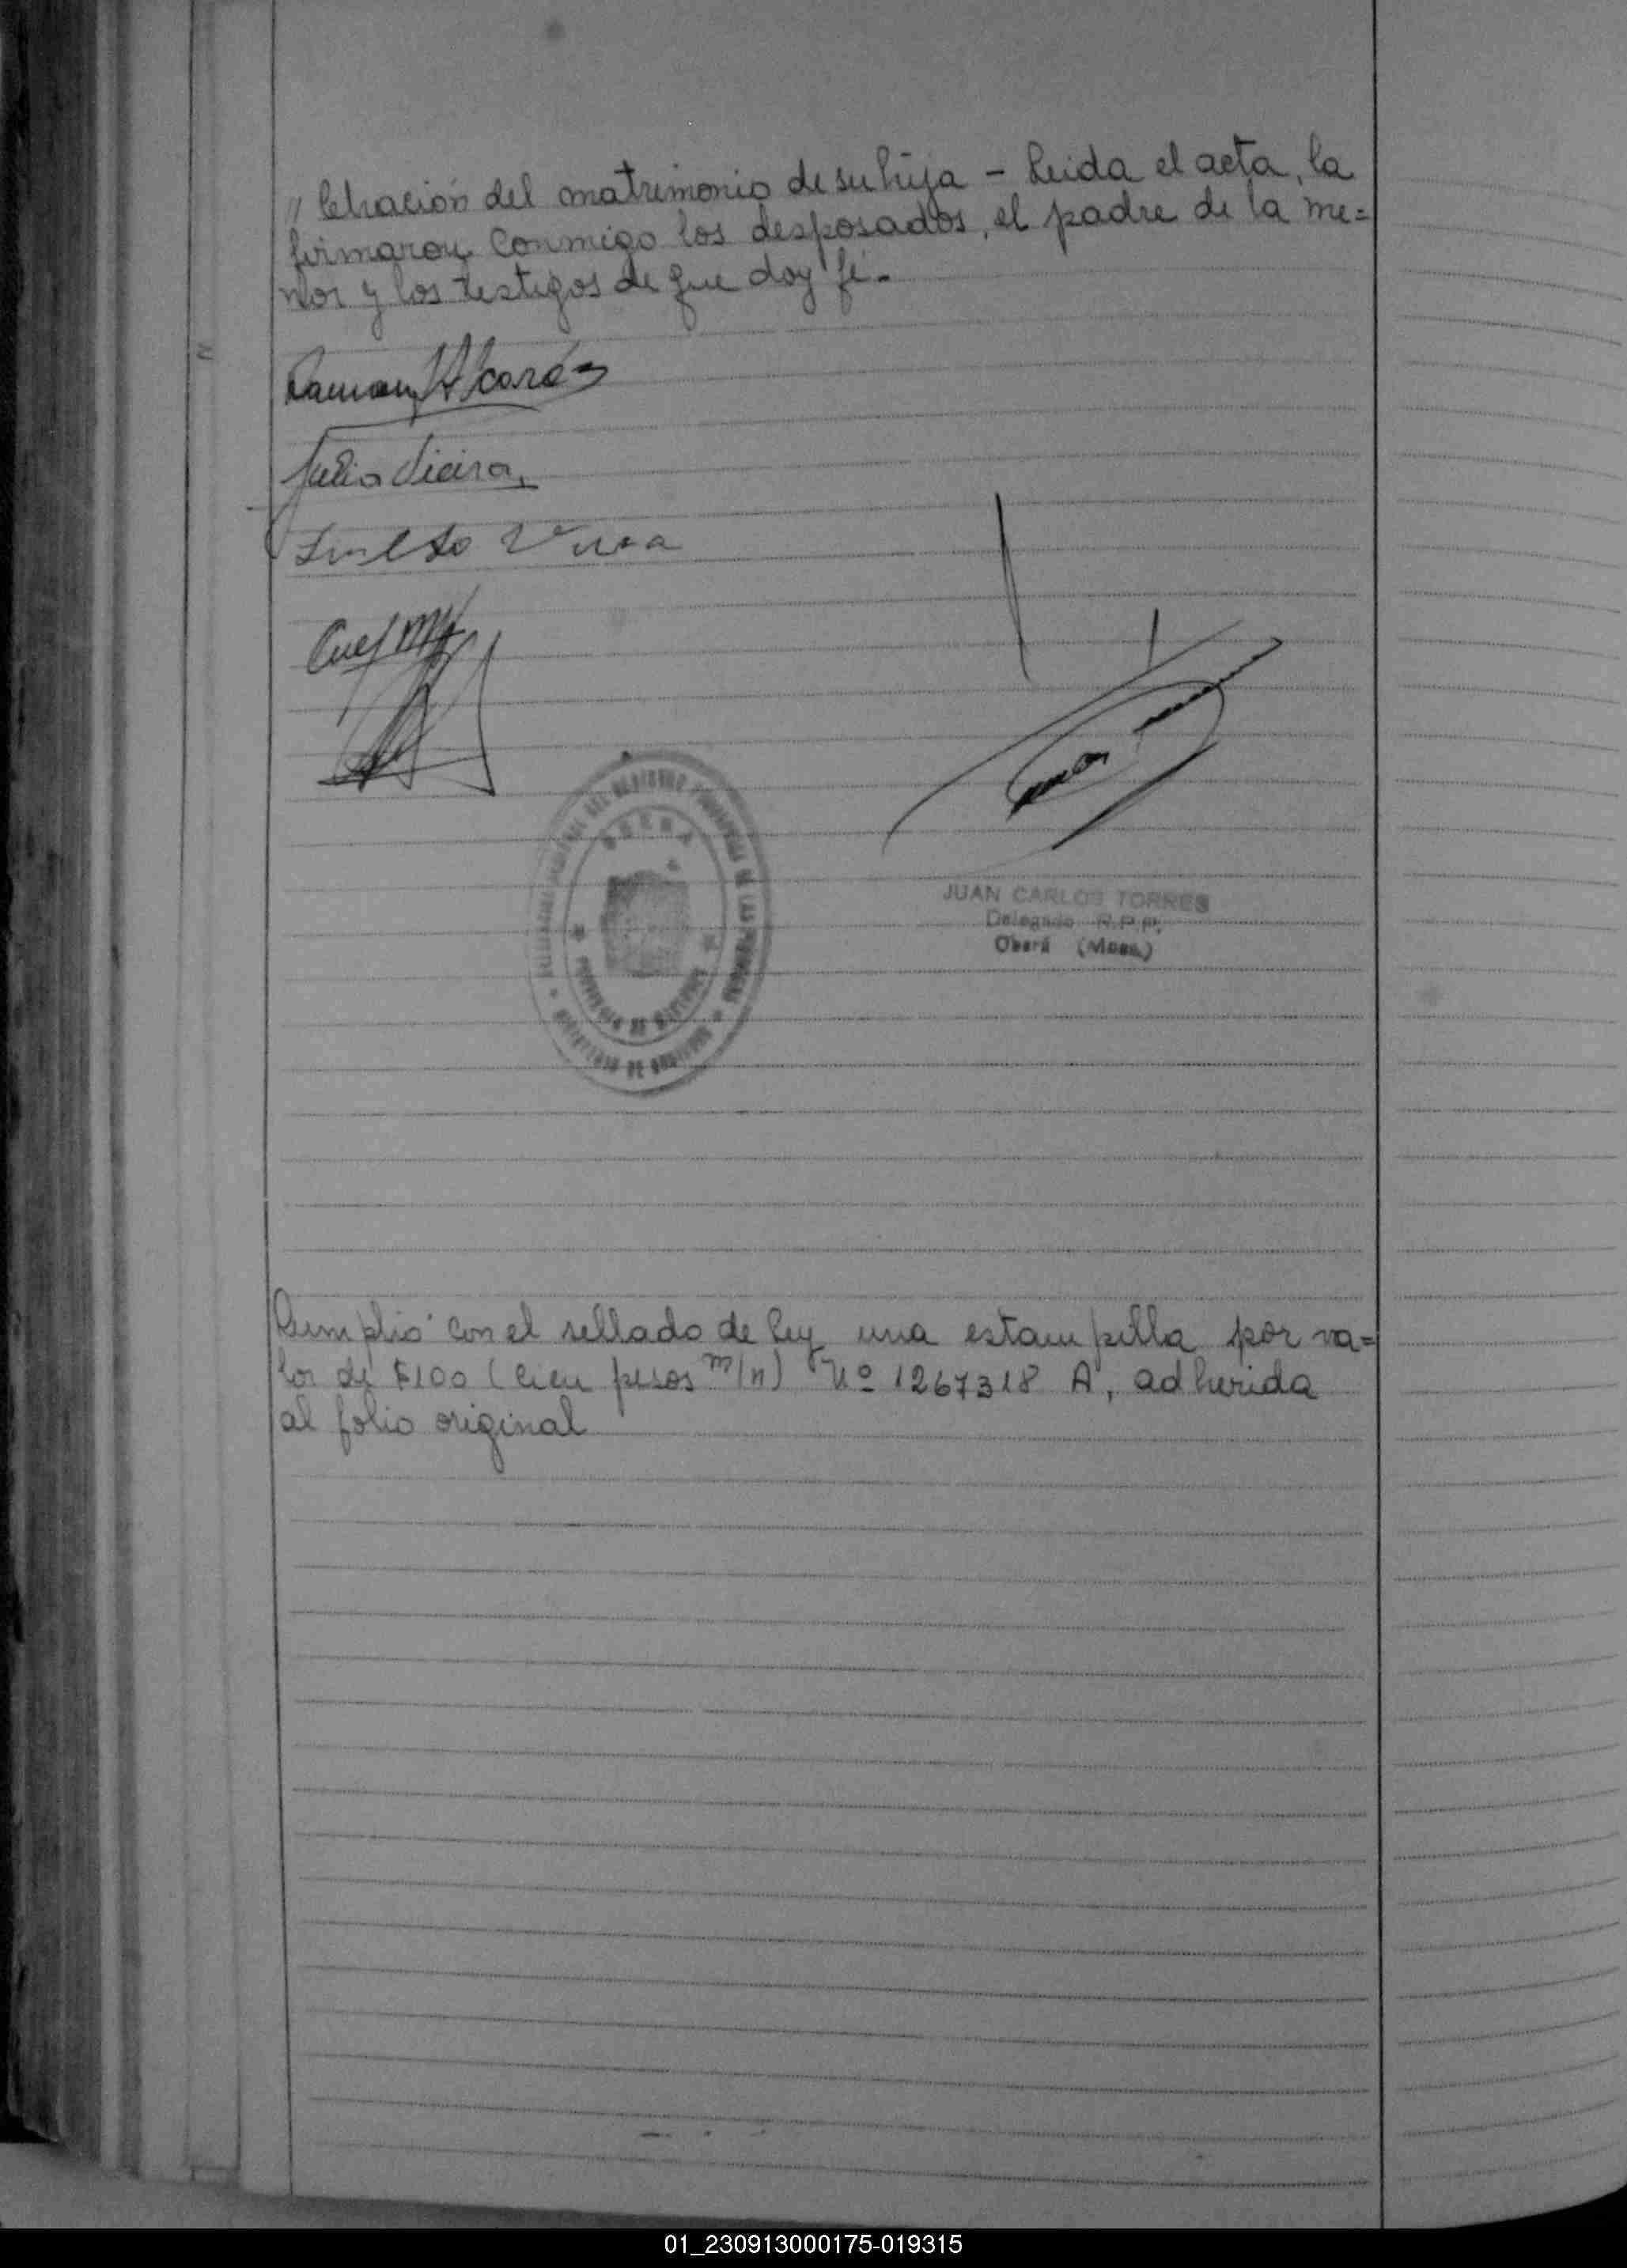 // lebración del matrimonio de su hija - Leida el acta, la
firmaron conmigo los desposados, el padre de la me=
nor y los testigos de que doy fé.-
Ramon Alcaráz
Julia Vieira
OBERA
PROVINCIA DE MISIONES
JUAN CARLOS TORRES
Delegado R.P.P.
Oberá (Mnes.)
Cumplió con el sellado de ley una estampilla por va=
lor de $100 (cien pesos m/n) Nº 1267318 A, adherida
al folio original
01_230913000175-019315